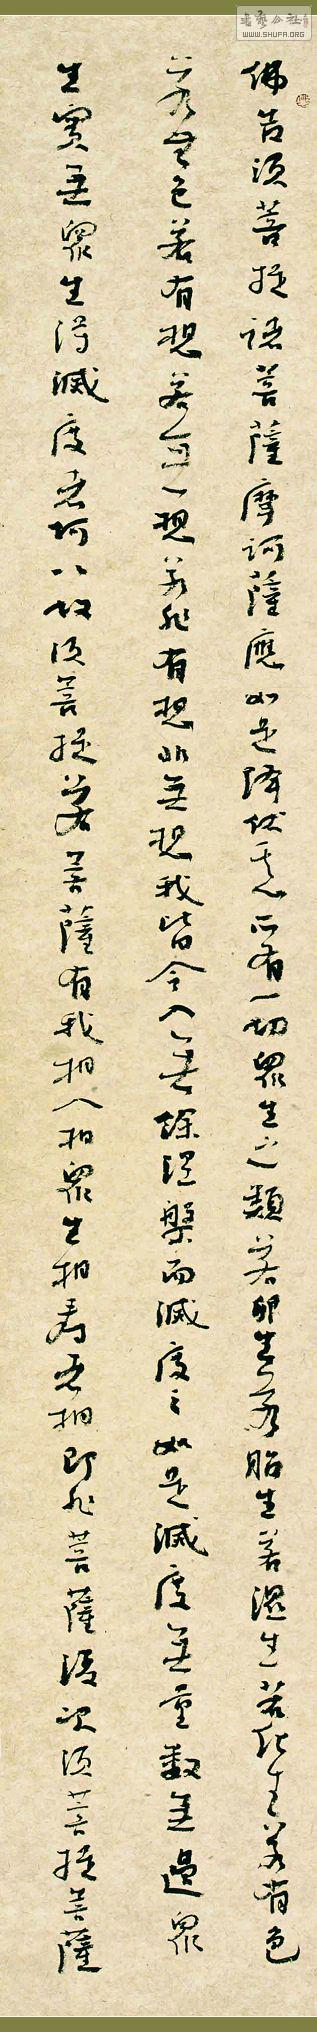 佛告須菩提諸菩薩摩訶薩應如是降伏其心所有一切眾生之類若卵生若胎生若濕生若化生若有色
若無色若有想若無想若非有想非無想我皆令入無餘涅槃而滅度之如是滅度無量數無邊眾
生實無眾生得滅度者何以故須菩提若菩薩有我相人相眾生相壽者相即非菩薩復次須菩提菩薩
WWW.SHUFA.ORG